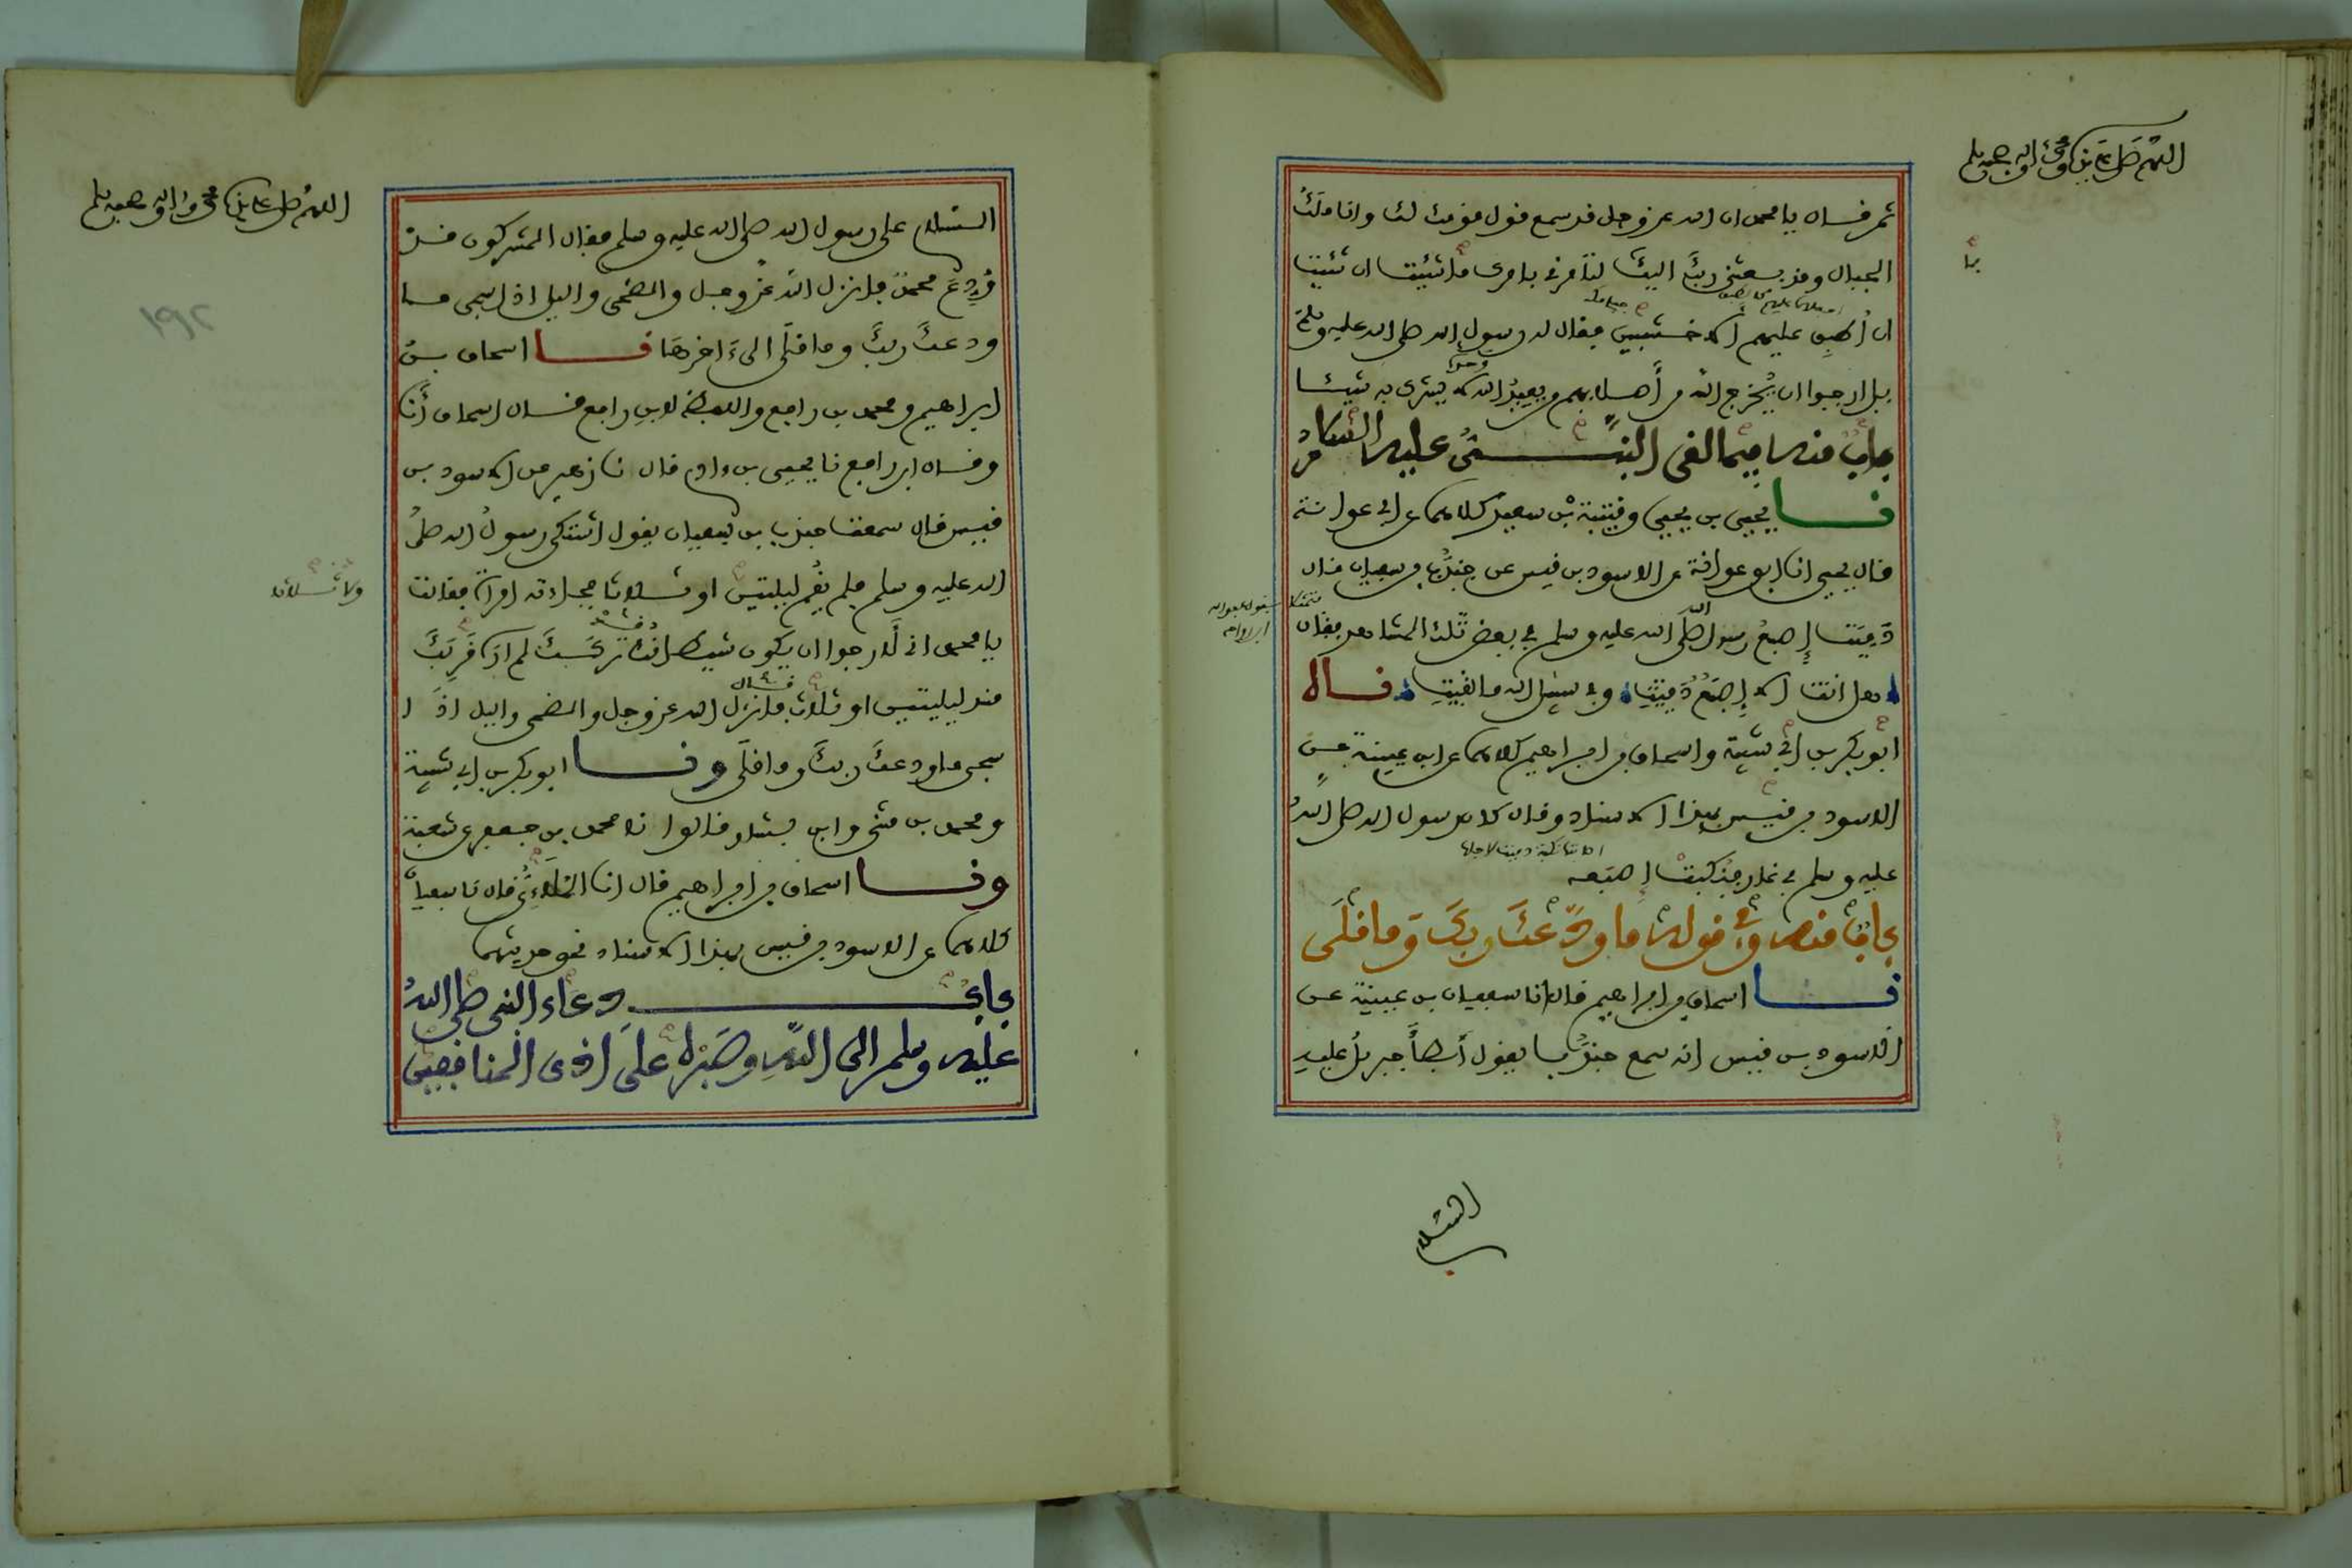 اللهم صل على سيدنا محمد وآله وصحبه وسلم
ثم قال يا محمد ان الله عز وجل قد سمع قول قومك لك وانا ملك
الجبال وقد بعثني ربك اليك لتأمرني بامرك ما شئت ان شئت
بما
ان أطبق عليهم الاخشبين فقال له رسول الله صلى الله عليه وسلم
بل ارجوا ان يُخرج الله من أصلابهم من يعبد الله لا يشرك به شيئا
وحده
باب منه فيما لقي النبي عليه السلام
نا يحيى بن يحيى وقتيبة بن سعيد كلاهما عن ابي عوانة
قال يحيى انا ابو عوانة عن الاسود بن قيس عن جندب بن سفيان قال
دَمِيَت إصبع رسول الله صلى الله عليه وسلم في بعض تلك المشاهد فقال
هل انت الا إصبع دميت وفي سبيل الله ما لقيت قال
ابو بكر بن ابي شيبة واسحاق بن ابراهيم كلاهما عن ابن عيينة عن
الاسود بن قيس بهذا الاسناد وقال كان رسول الله صلى الله
عليه وسلم في غار فنكبت إصبعه
باب منه وفي قوله ما ودّعك ربك وما قلى
نا اسحاق بن ابراهيم قال انا سفيان بن عيينة عن
الاسود بن قيس انه سمع جندبا يقول أبطأ جبريل عليه
السلام
اللهم صل على سيدنا محمد وآله وصحبه وسلم
١٩٢
السلام على رسول الله صلى الله عليه وسلم فقال المشركون قد
وُدِّعَ محمد فانزل الله عز وجل والضحى والليل اذا سجى ما
ودعك ربك وما قلى الى اخرها نا اسحاق بن
ابراهيم ومحمد بن رافع واللفظ لابن رافع قال اسحاق أنا
وقال ابن رافع نا يحيى بن ءادم قال نا زهير عن الاسود بن
قيس قال سمعت جندب بن سفيان يقول اشتكى رسول الله صلى
الله عليه وسلم فلم يقم ليلتين او ثلاثا فجاءته امرأة فقالت
يا محمد اني لأرجوا ان يكون شيطانك تركك لم اره قَرِبَك
منذ ليلتين او ثلاث فانزل الله عز وجل والضحى والليل اذا
قال
سجى ما ودعك ربك وما قلى ونا ابو بكر بن ابي شيبة
ومحمد بن مثنى وابن بشار قالوا نا محمد بن جعفر عن شعبة
ونا اسحاق بن ابراهيم قال انا الملائي قال نا سفيان
كلاهما عن الاسود بن قيس بهذا الاسناد نحو حديثهما
باب دعاء النبي صلى الله
عليه وسلم الى الله وصبره على اذى المنافقين